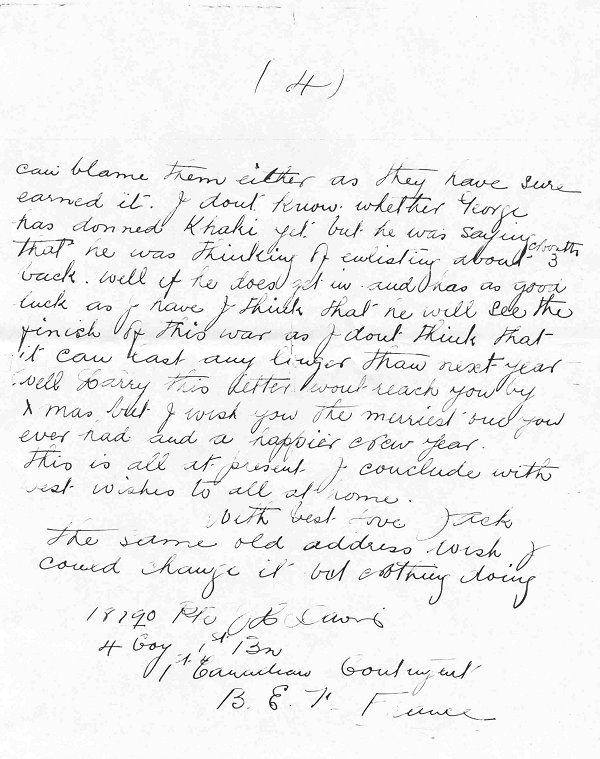 ( 4 )
can blame them either as they have sure
earned it. I dont know whether George
has donned Khaki yet but he was saying
that he was thinking of enlisting about 3 months
back. well if he does get in and has as good
luck as I have I think that he will see the
finish of this war as I dont think that
it can last any longer than next year
well Harry this letter wont reach you by
X mas but I wish you the merriest one you
ever had and a happier New Year.
This is all at present I conclude with
best wishes to all at home.
With best love Jack
The same old address wish I
could change it but nothing doing
18790 Pte Davis
4 Coy 1st Bn
1st Canadian Contingent
B. E. F. France